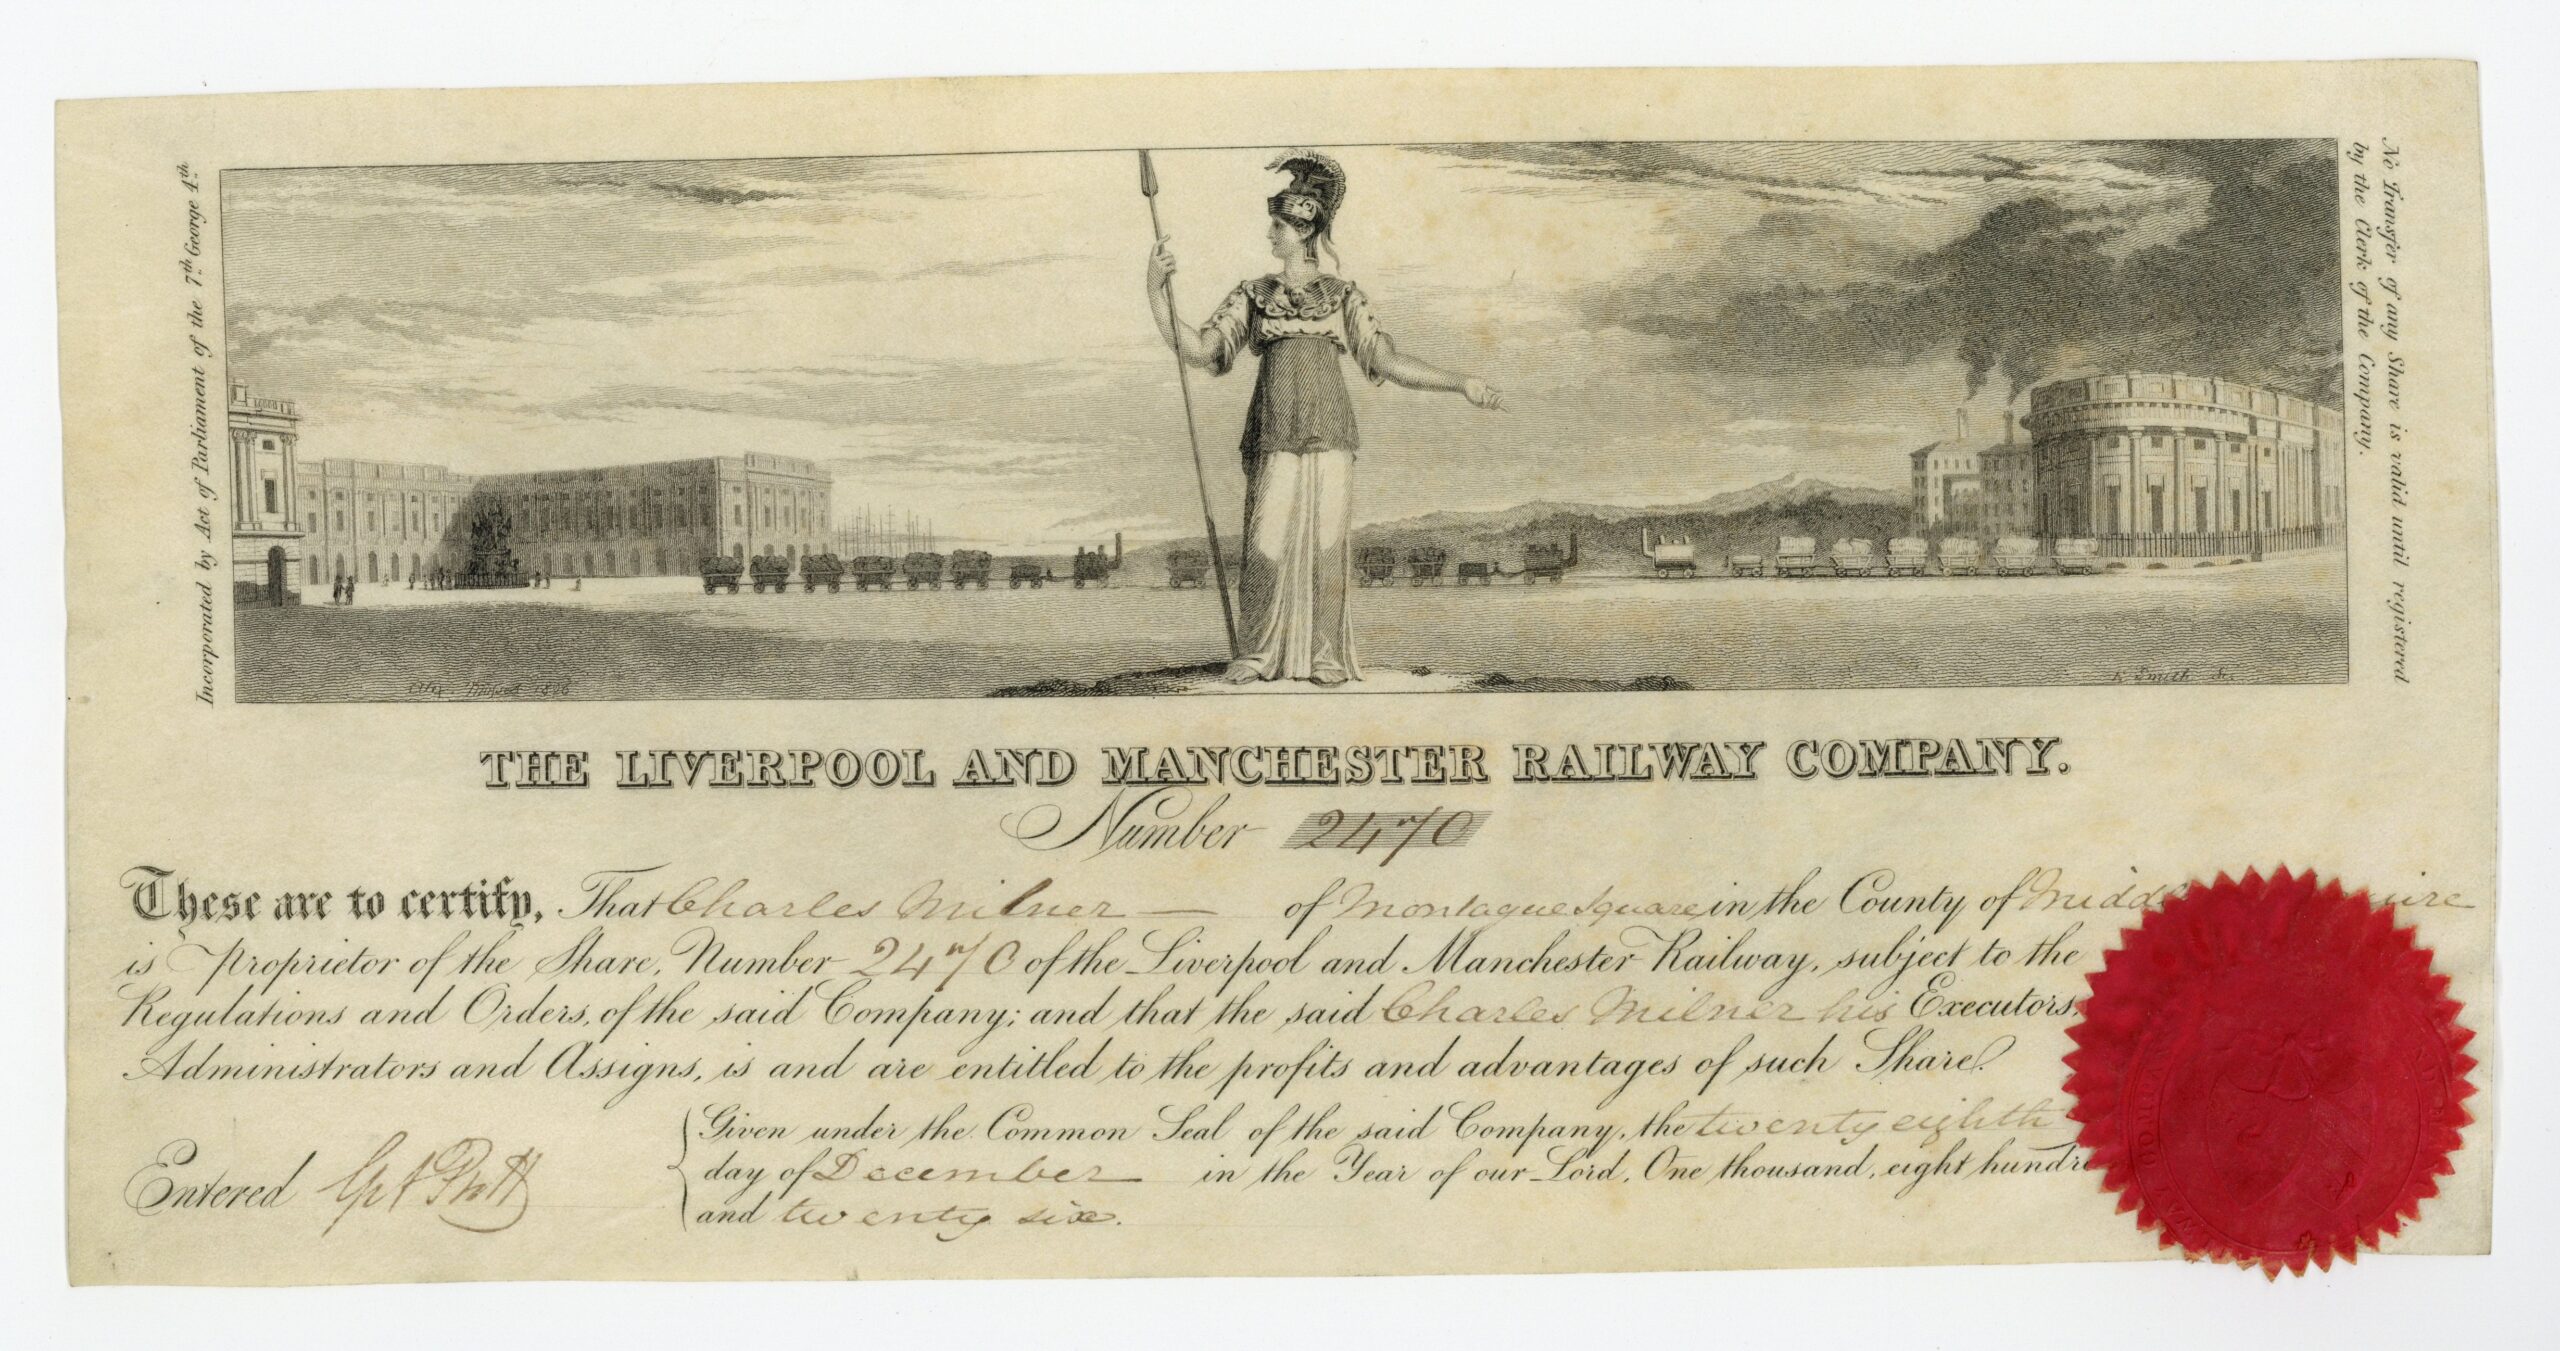 Incorporated by Act of Parliament of the 7th George 4th.
No Transfer of any Share is valid until registered
by the Clerk of the Company.
1826
Smith
THE LIVERPOOL AND MANCHESTER RAILWAY COMPANY.
Number 2470
These are to certify, That Charles Milner — of Montague Square in the County of
is Proprietor of the Share, Number 2470 of the Liverpool and Manchester Railway, subject to the
Regulations and Orders, of the said Company; and that the said Charles Milner his Executors,
Administrators and Assigns, is and are entitled to the profits and advantages of such Share.
Given under the Common Seal of the said Company, the twenty eighth
Entered
day of December in the Year of our Lord, One thousand, eight
and twenty six.